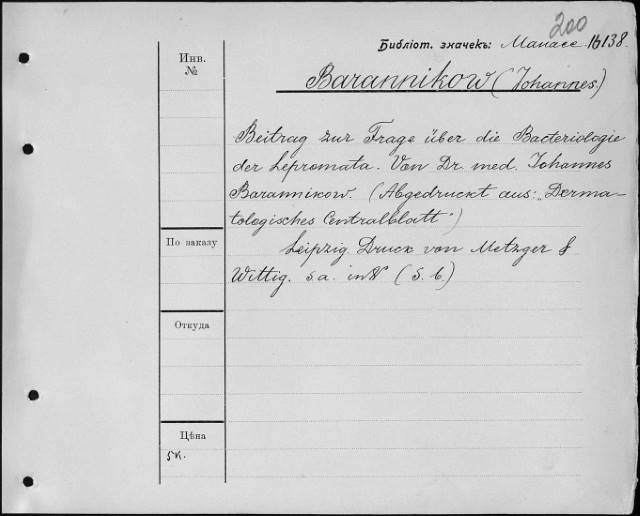 200
Библіот. значекъ: Манасе. 16138.
Инв.
№
Barannikow (Johannes.)
Beitrag zur Frage über die Bacteriologie
der Lepromata. Von Dr. med. Johannes
Barannikow. (Abgedruckt aus: „Derma-
tologisches Centralblatt")
По заказу
Leipzig. Druck von Metzger &
Wittig. s.a. in (S. 6.)
Откуда
Цѣна
5к.